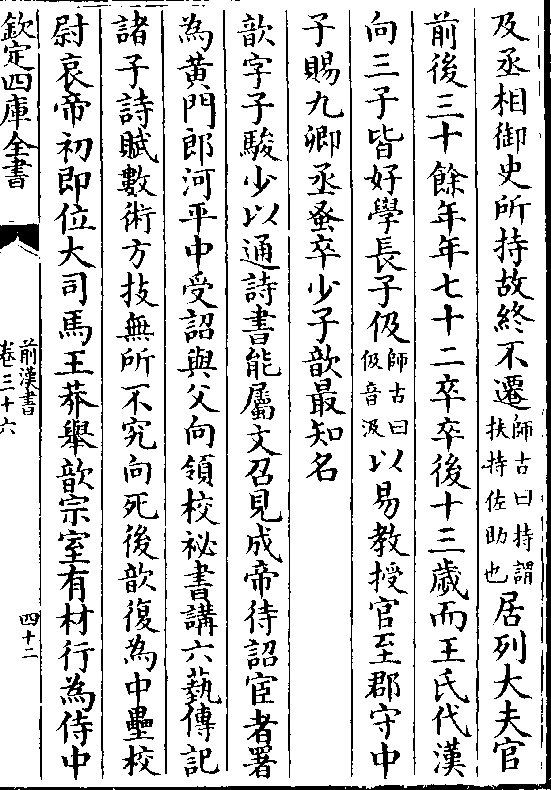 及丞相御史所持故終不遷師古曰持謂扶持佐助也居列大夫官
前後三十餘年年七十二卒卒後十三歲而王氏代漢
向三子皆好學長子伋師古曰伋音汲以易教授官至郡守中
子賜九卿丞蚤卒少子歆最知名
歆字子駿少以通詩書能屬文召見成帝待詔宦者署
為黃門郎河平中受詔與父向領校祕書講六藝傳記
諸子詩賦數術方技無所不究向死後歆復為中壘校
尉哀帝初即位大司馬王莽舉歆宗室有材行為侍中
欽定四庫全書
前漢書
卷三十六
四十二